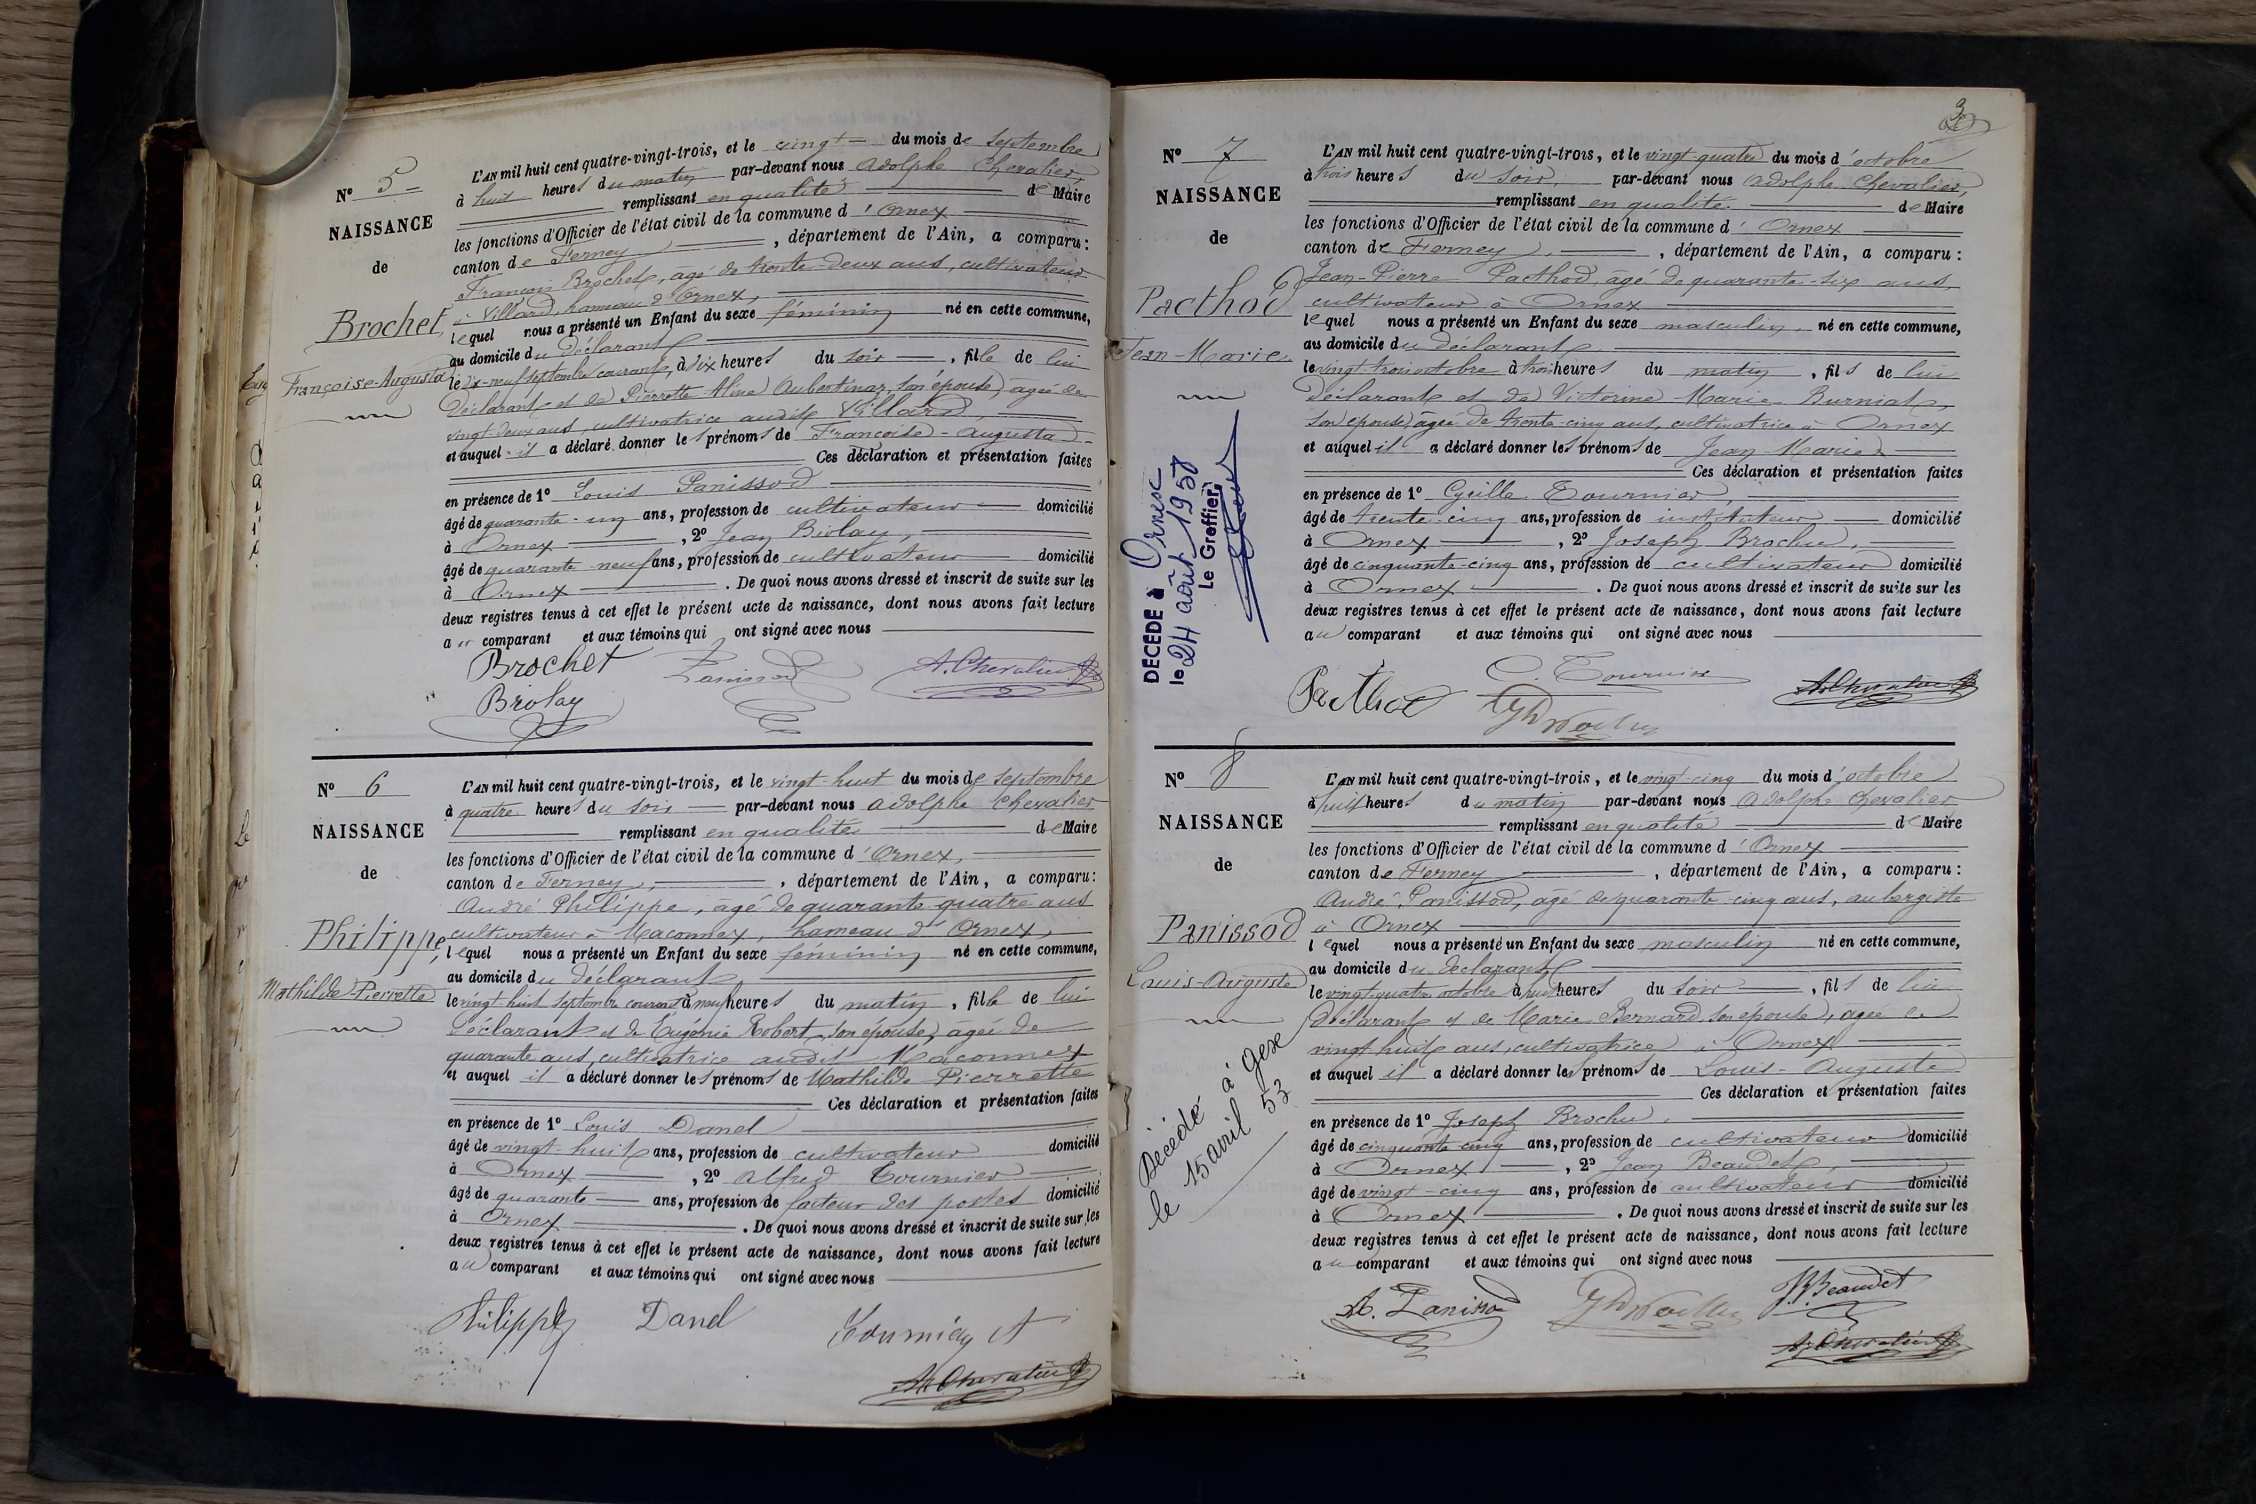 Nº 5
NAISSANCE
de
Brochet,
Françoise-Augusta
L'AN mil huit cent quatre-vingt-trois, et le vingt du mois de septembre
à huit heures du matin par-devant nous Adolphe Chevalier,
remplissant en qualité de Maire
les fonctions d'Officier de l'état civil de la commune d'Ornex
canton de Ferney, département de l'Ain, a comparu:
François Brochet, âgé de trente-deux ans, cultivateur
à Villard, hameau d'Ornex,
lequel nous a présenté un Enfant du sexe féminin né en cette commune,
au domicile du déclarant
le dix-neuf septembre courant, à six heures du soir, fille de lui
déclarant et de Pierrette Aline Aubertinaz, son épouse, agée de
vingt-deux ans, cultivatrice audit Villard,
et auquel il a déclaré donner les prénoms de Françoise-Augusta
Ces déclaration et présentation faites
en présence de 1º Louis Panissod
âgé de quarante-un ans, profession de cultivateur domicilié
à Ornex, 2º Jean Brolay,
âgé de quarante-neuf ans, profession de cultivateur domicilié
à Ornex. De quoi nous avons dressé et inscrit de suite sur les
deux registres tenus à cet effet le présent acte de naissance, dont nous avons fait lecture
au comparant et aux témoins qui ont signé avec nous
Brochet Panissod A. Chevalier
Brolay
Nº 6
NAISSANCE
de
Philippe,
Mathilde-Pierrette
L'AN mil huit cent quatre-vingt-trois, et le vingt-huit du mois de septembre
à quatre heures du soir par-devant nous Adolphe Chevalier
remplissant en qualité de Maire
les fonctions d'Officier de l'état civil de la commune d'Ornex,
canton de Ferney, département de l'Ain, a comparu:
André Philippe, âgé de quarante-quatre ans
cultivateur à Maconnex, hameau d'Ornex,
lequel nous a présenté un Enfant du sexe féminin né en cette commune,
au domicile du déclarant
le vingt-huit septembre courant à neuf heures du matin, fille de lui
déclarant et de Eugénie Robert, son épouse, agée de
quarante ans, cultivatrice audit Maconnex
et auquel il a déclaré donner les prénoms de Mathilde Pierrette
Ces déclaration et présentation faites
en présence de 1º Louis Danel
âgé de vingt-huit ans, profession de cultivateur domicilié
à Ornex, 2º Alfred Tournier
âgé de quarante ans, profession de facteur des postes domicilié
à Ornex. De quoi nous avons dressé et inscrit de suite sur les
deux registres tenus à cet effet le présent acte de naissance, dont nous avons fait lecture
au comparant et aux témoins qui ont signé avec nous
Philippe Danel Tournier A
A. Chevalier
3
Nº 7
NAISSANCE
de
Pacthod
Jean-Marie
DÉCÉDÉ à Ornex
le 24 août 1958
Le Greffier,
L'AN mil huit cent quatre-vingt-trois, et le vingt-quatre du mois d'octobre
à trois heures du soir, par-devant nous Adolphe Chevalier,
remplissant en qualité de Maire
les fonctions d'Officier de l'état civil de la commune d'Ornex
canton de Ferney, département de l'Ain, a comparu:
Jean-Pierre Pacthod, âgé de quarante-six ans,
cultivateur à Ornex
lequel nous a présenté un Enfant du sexe masculin, né en cette commune,
au domicile du déclarant,
le vingt-trois octobre à trois heures du matin, fils de lui
déclarant et de Victorine Marie Burniat,
son épouse, âgée de trente-cinq ans, cultivatrice à Ornex
et auquel il a déclaré donner les prénoms de Jean Marie
Ces déclaration et présentation faites
en présence de 1º Cyrille Tournier,
âgé de trente-cinq ans, profession de instituteur domicilié
à Ornex, 2º Joseph Brochu,
âgé de cinquante-cinq ans, profession de cultivateur domicilié
à Ornex. De quoi nous avons dressé et inscrit de suite sur les
deux registres tenus à cet effet le présent acte de naissance, dont nous avons fait lecture
au comparant et aux témoins qui ont signé avec nous
Pacthod C. Tournier A. Chevalier
Nº 8
NAISSANCE
de
Panissod
Louis-Auguste
Décédé à Gex
le 15 avril 53
L'AN mil huit cent quatre-vingt-trois, et le vingt-cinq du mois d'octobre
à huit heures du matin par-devant nous Adolphe Chevalier
remplissant en qualité de Maire
les fonctions d'Officier de l'état civil de la commune d'Ornex
canton de Ferney, département de l'Ain, a comparu:
André Panissod, âgé de quarante-cinq ans, aubergiste
à Ornex
lequel nous a présenté un Enfant du sexe masculin né en cette commune,
au domicile du déclarant
le vingt-quatre octobre à huit heures du soir, fils de lui
déclarant et de Marie Bernard son épouse, agée de
vingt-huit ans, cultivatrice à Ornex
et auquel il a déclaré donner les prénoms de Louis-Auguste
Ces déclaration et présentation faites
en présence de 1º Joseph Brochu,
âgé de cinquante-cinq ans, profession de cultivateur domicilié
à Ornex, 2º Jean Beaudet,
âgé de vingt-cinq ans, profession de cultivateur domicilié
à Ornex. De quoi nous avons dressé et inscrit de suite sur les
deux registres tenus à cet effet le présent acte de naissance, dont nous avons fait lecture
au comparant et aux témoins qui ont signé avec nous
A. Panissod J. Beaudet
A. Chevalier